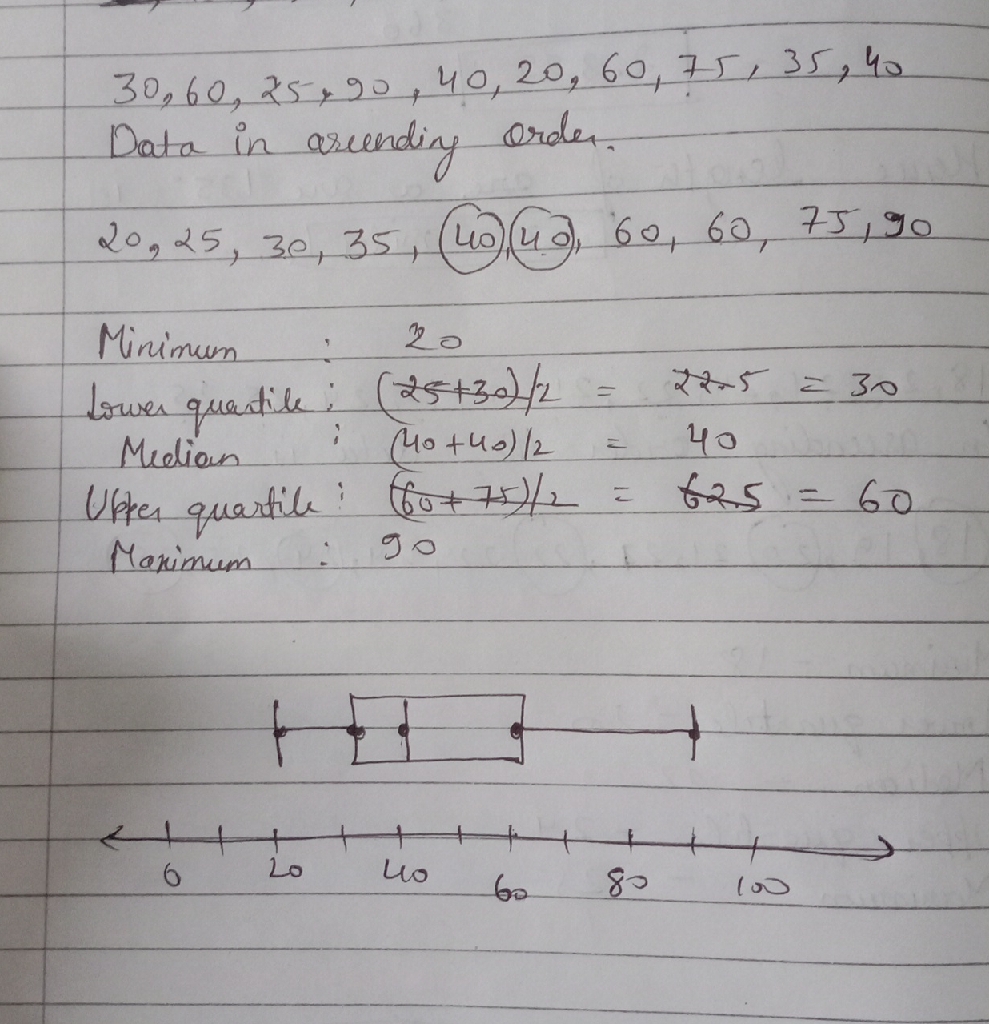 30, 60, 25, 90, 40, 20, 60, 75, 35, 40
Data in ascending order.
20, 25, 30, 35, 40, 40, 60, 60, 75, 90
Minimum : 20
Lower quartile : (25+30)/2 = 22.5 = 30
Median : (40+40)/2 = 40
Upper quartile : (60+75)/2 = 62.5 = 60
Maximum : 90
0 20 40 60 80 100